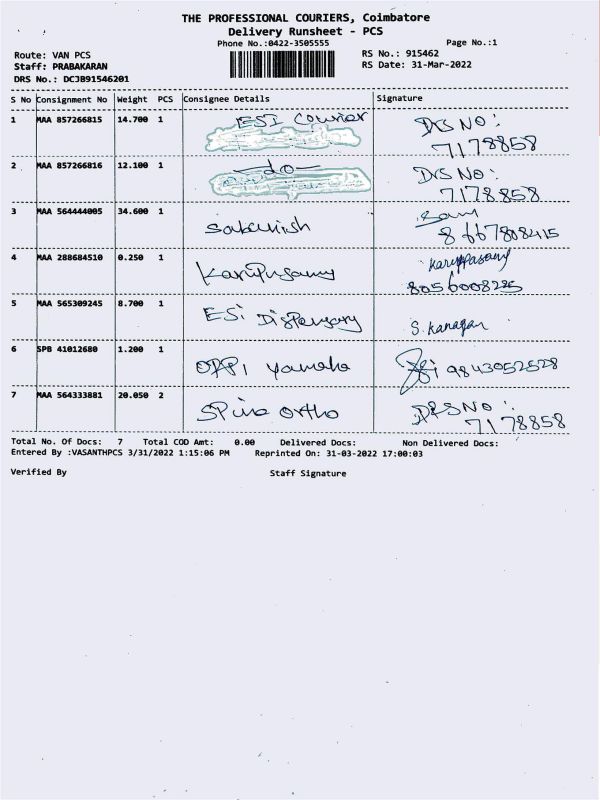 THE PROFESSIONAL COURIERS, Coimbatore
Delivery Runsheet - PCS
Phone No.:0422-3505555
Page No.:1
Route: VAN PCS
RS No.: 915462
Staff: PRABAKARAN
RS Date: 31-Mar-2022
DRS No.: DCJB91546201
S No Consignment No Weight PCS Consignee Details Signature
1 MAA 857266815 14.700 1 ESI Courier DRS NO:
7178858
2 MAA 857266816 12.100 1 -do- DRS NO:
7178858
3 MAA 564444005 34.600 1 Sabarish
8667808415
4 MAA 288684510 0.250 1 Karupusamy Karuppasamy
8056008225
5 MAA 565309245 8.700 1 ESI Dispensary S. Kanagan
6 SPB 41012680 1.200 1 Yamaha 9843052528
7 MAA 564333881 20.050 2 Spine Ortho DRS NO:
7178858
Total No. Of Docs: 7 Total COD Amt: 0.00 Delivered Docs: Non Delivered Docs:
Entered By :VASANTHPCS 3/31/2022 1:15:06 PM Reprinted On: 31-03-2022 17:00:03
Verified By Staff Signature